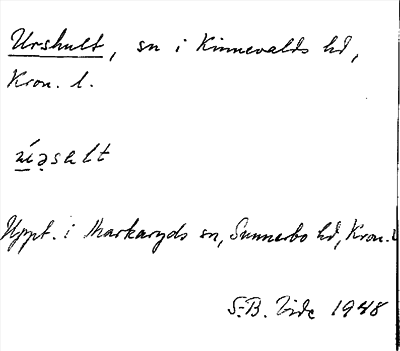 Urshult, sn i Kinnevalds hd,
Kron. l.
Uppt. i Markaryds sn, Sunnerbo hd, Kron. l
S.-B. Vide 1948